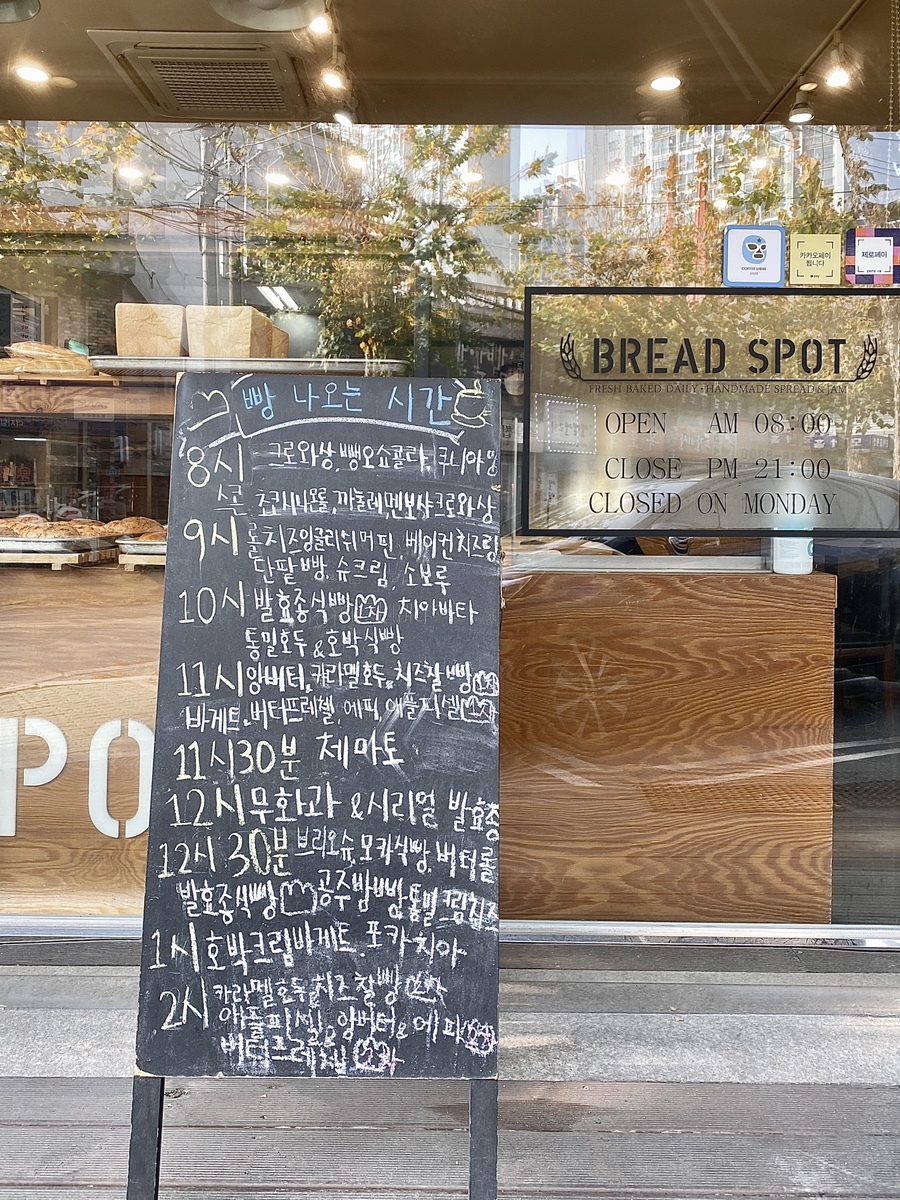 빵 나오는 시간
8시 크로와상, 뺑오쇼콜라, 쿠니아망
스콘, 초카시나몬롤, 까눌레, 멘보샤크로와상
9시 롤치즈잉글리쉬머핀, 베이컨치즈링
단팥빵, 슈크림, 소보루
10시 발효종식빵 1차 치아바타
통밀호두 & 호박식빵
11시 앙버터, 카라멜호두, 치즈찰빵
바게트, 버터프레첼, 에피, 애플피셀
11시30분 체마토
12시 무화과 & 시리얼 발효종
12시 30분 브리오슈, 모카식빵, 버터롤
발효종식빵 공주밤빵 통밀크림치즈
1시 호박크림바게트, 포카치아
2시 카라멜호두, 치즈찰빵 2차
애플피셀, 앙버터, 에피
버터프레첼 2차
COFFEE LIBRE
카카오페이
됩니다
제로페이
BREAD SPOT
FRESH BAKED DAILY・HANDMADE SPREAD & JAM
OPEN AM 08:00
CLOSE PM 21:00
CLOSED ON MONDAY
PO